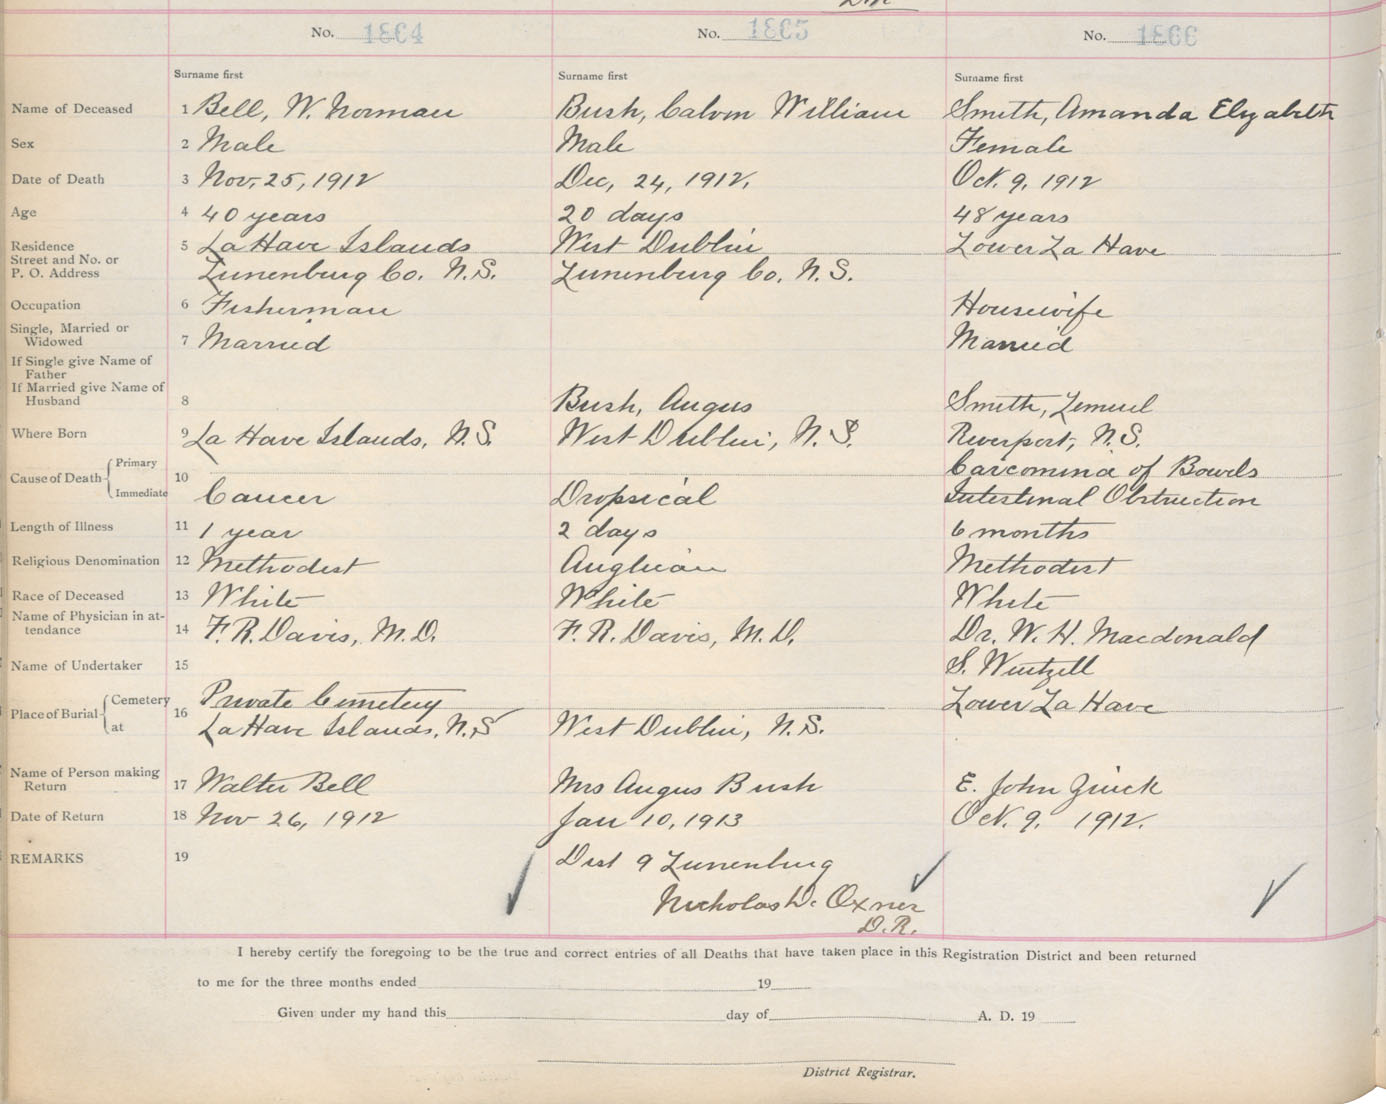 D.R
No. 1864 No. 1865 No. 1866
Surname first Surname first Surname first
Name of Deceased 1 Bell, W. Norman Bush, Calvin William Smith, Amanda Elizabeth
Sex 2 Male Male Female
Date of Death 3 Nov, 25, 1912 Dec, 24, 1912. Oct. 9, 1912
Age 4 40 years 20 days 48 years
Residence 5 La Have Islands West Dublin Lower La Have
Street and No. or
P. O. Address Lunenburg Co. N.S. Lunenburg Co, N.S.
Occupation 6 Fisherman Housewife
Single, Married or
Widowed 7 Married Married
If Single give Name of
Father
If Married give Name of
Husband 8 Bush, Angus Smith, Lemuel
Where Born 9 La Have Islands, N.S. West Dublin, N.S. Riverport, N.S.
Primary Carcomina of Bowels
Cause of Death 10
Immediate Cancer Dropsical Intestinal Obstruction
Length of Illness 11 1 year 2 days 6 months
Religious Denomination 12 Methodist Anglican Methodist
Race of Deceased 13 White White White
Name of Physician in at-
tendance 14 F. R. Davis, M.D. F. R. Davis, M.D. Dr. W. H. Macdonald
Name of Undertaker 15 S. Wentzell
Cemetery Private Cemetery Lower La Have
Place of Burial 16
at La Have Islands, N.S West Dublin, N.S.
Name of Person making
Return 17 Walter Bell Mrs Angus Bush E. John
Date of Return 18 Nov 26, 1912 Jan 10, 1913 Oct. 9. 1912.
REMARKS 19 Dist 9 Lunenburg
Nicholas W. Oxner
D.R.
I hereby certify the foregoing to be the true and correct entries of all Deaths that have taken place in this Registration District and been returned
to me for the three months ended 19
Given under my hand this day of A. D. 19
District Registrar.